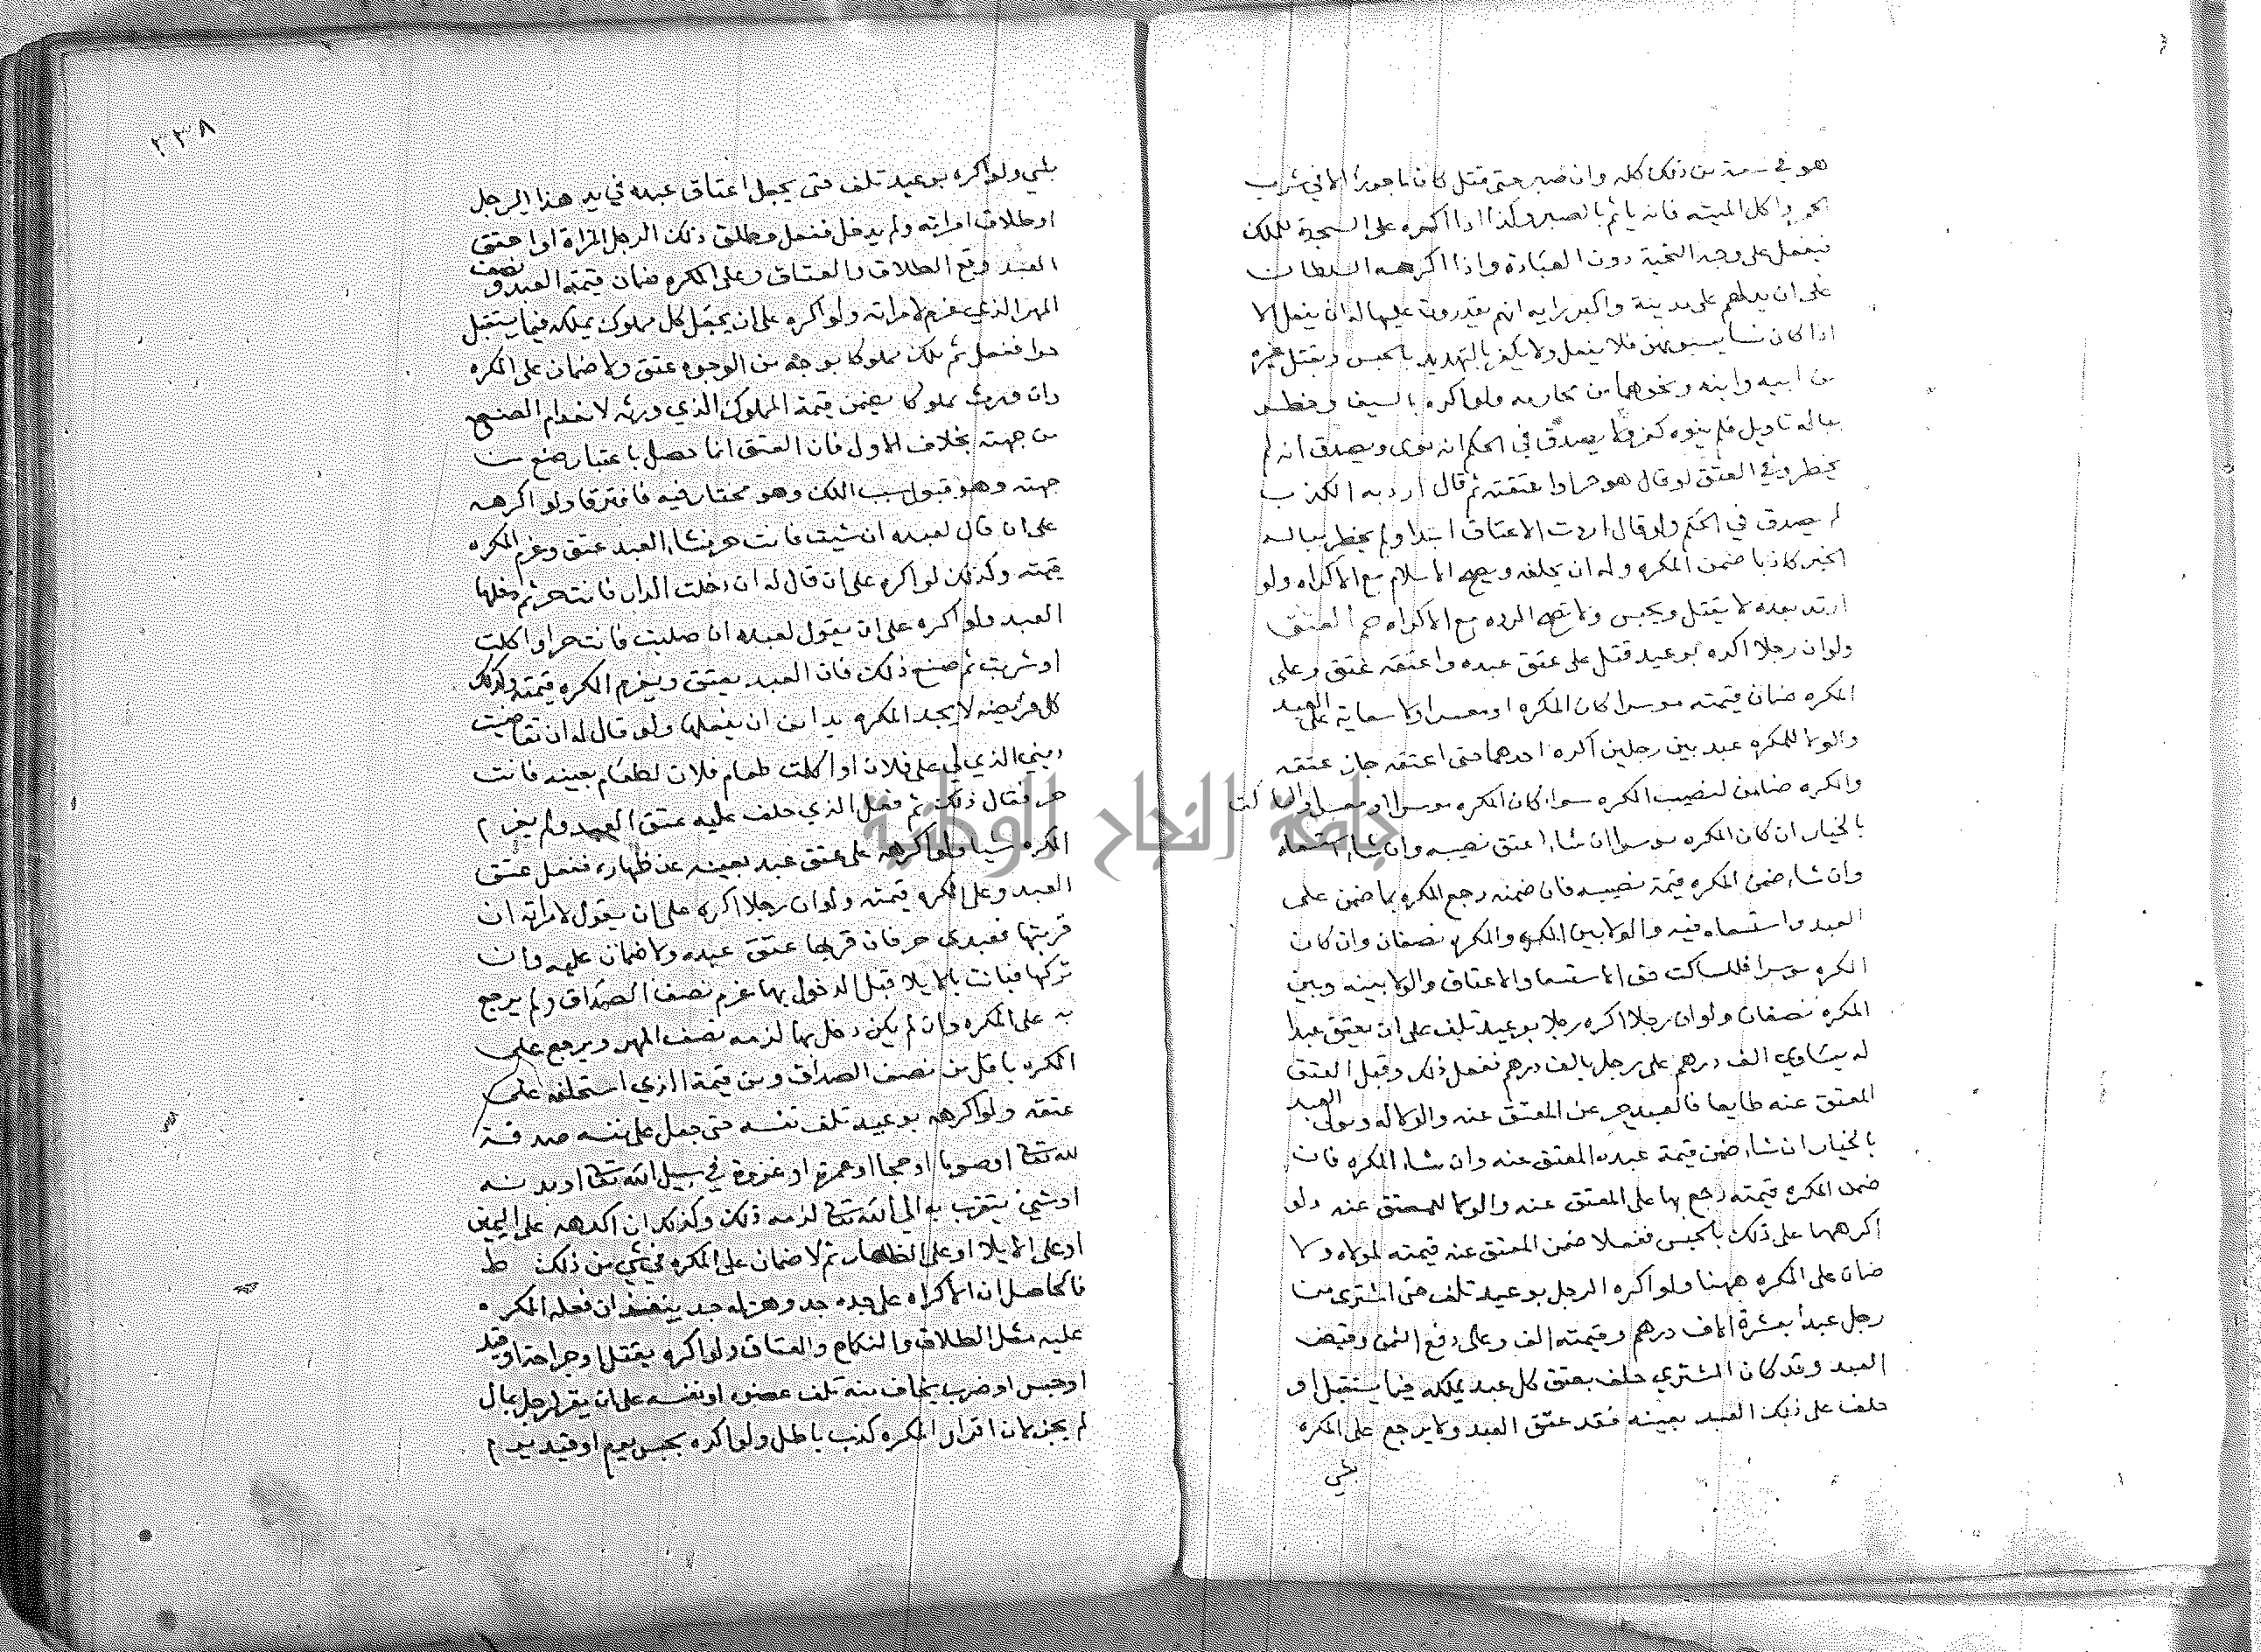 هو في سعة من ذلك كله وان صبر حتى قتل كان ماجورا الا في شرب
الخمر واكل الميته فانه ياثم بالصبر وكذا اذا اكره على السجدة للملك
فيفعل على وجه التحية دون العبادة واذا اكرهه السلطان
على ان يدلهم على مدينة واكبر رايه انهم يقدرون عليها له ان يفعل الا
اذا كان نسا يسبوهن فلا يفعل ولا يكفر بالتهديد بالحبس وبقتل غيره
من ابيه وابنه ونحوهما من محارمه ولو اكره بالسيف وخطر
بباله تاويل فلم ينوه كفر ولا يصدق في الحكم انه نوى ويصدق انه لم
يخطر وفي العتق لو قال هو حر او اعتقته ثم قال اردت به الكذب
لم يصدق في الحكم ولو قال اردت الاعتاق ابتدا ولم يخطر بباله
الخبر كاذبا ضمن المكره وله ان يحلفه ويصح الاسلام مع الاكراه ولو
ارتد بعده لا يقتل ويحبس ولا تصح الرده مع الاكراه حم العتق
ولو ان رجلا اكره بوعيد قتل على عتق عبده واعتقه عتق وعلى
المكره ضمان قيمته موسرا كان المكره او معسرا ولا سعاية على العبد
والولا للمكره عبد بين رجلين اكره احدهما حتى اعتقه جاز عتقه
والمكره ضامن لنصيب المكره سوا كان المكره موسرا او معسرا والساكت
بالخيار ان كان المكره موسرا ان شاء اعتق نصيبه وان شاء استسعاه
وان شاء ضمن المكره قيمة نصيبه فان ضمنه رجع المكره بما ضمن على
العبد واستسعاه فيه والولا بين المكره والمكره نصفان وان كان
المكره معسرا فللساكت حق الاستسعا والاعتاق والولا بينه وبين
المكره نصفان ولو ان رجلا اكره رجلا بوعيد تلف على ان يعتق عبدا
له يساوي الف درهم على رجل بالف درهم ففعل ذلك وقبل العتق
المعتق عنه طايعا فالعبد حر عن المعتق عنه والولا له ومولى العبد
بالخيار ان شاء ضمن قيمة عبده المعتق عنه وان شاء المكره فان
ضمن المكره قيمته رجع بها على المعتق عنه والولا للمعتق عنه ولو
اكرههما على ذلك بالحبس ففعلا ضمن المعتق عنه قيمته لمولاه ولا
ضمان على المكره ههنا ولو اكره الرجل بوعيد تلف حتى اشترى من
رجل عبدا بعشرة الاف درهم وقيمته الف وعلى دفع الثمن وقبض
العبد وقد كان المشتري حلف بعتق كل عبد يملكه فيما يستقبل او
حلف على ذلك العبد بعينه فقد عتق العبد ولا يرجع على المكره
بشي
٣٣٨
بشي ولو اكره بوعيد تلف حتى يجعل اعتاق عبده في يد هذا الرجل
او طلاق امراته ولم يدخل ففعل وطلق ذلك الرجل المراة او اعتق
العبد وقع الطلاق والعتاق وعلى المكره ضمان قيمة العبد ونصف
المهر الذي غرم لامراته ولو اكره على ان يجعل كل مملوك يملكه فيما يستقبل
حرا ففعل ثم ملك مملوكا بوجه من الوجوه عتق ولا ضمان على المكره
وان ورث مملوكا يضمن قيمة المملوك الذي ورثه لانعدام الصنع
من جهته بخلاف الاول فان العتق انما حصل باعتبار صنع من
جهته وهو قبول سبب الملك وهو مختار فيه فافترقا ولو اكرهه
على ان قال لعبده ان شيت فانت حر فشاء العبد عتق وغرم المكره
قيمته وكذلك لو اكره على ان قال له ان دخلت الدار فانت حر ثم دخلها
العبد ولو اكره على ان يقول لعبده ان صليت فانت حر او اكلت
او شربت ثم صنع ذلك فان العبد يعتق ويغرم المكره قيمته وكذلك
كل فريضه لا يجد المكره بدا من ان يفعلها ولو قال له ان تقاضيت
ديني الذي لي على فلان او اكلت طعام فلان لطعام بعينه فانت
حر فقال ذلك ثم فعل الذي حلف عليه عتق العبد ولم يغرم
المكره شيا ولو اكرهه على عتق عبد بعينه عن ظهاره ففعل عتق
العبد وعلى المكره قيمته ولو ان رجلا اكره على ان يقول لامراته ان
قربتها فعبدي حر فان قربها عتق عبده ولا ضمان عليه وان
تركها فبانت بالايلا قبل الدخول بها غرم نصف الصداق ولم يرجع
به على المكره وان لم يكن دخل بها لزمه نصف المهر ويرجع على
المكره باقل من نصف الصداق ومن قيمة الذي استحلفه على
عتقه ولو اكرهه بوعيد تلف نفسه حتى جعل على نفسه صدقة
لله تعالى او صوما او حجا او عمرة او غزوة في سبيل الله تعالى او بدنه
او شي يتقرب به الى الله تعالى لزمه ذلك وكذلك ان اكرهه على اليمين
او على الايلا او على الظهار ثم لا ضمان على المكره في شي من ذلك ط
فالحاصل ان الاكراه على جده جد وهزله جد ينفذ ان فعله المكره
عليه مثل الطلاق والنكاح والعتاق ولو اكره بقتل او جراحة او قيد
او حبس او ضرب يخاف منه تلف عضو او نفسه على ان يقر لرجل بمال
لم يجز لان اقرار المكره كذب باطل ولو اكره بحبس يوم او قيد يوم
جامعة النجاح الوطنية